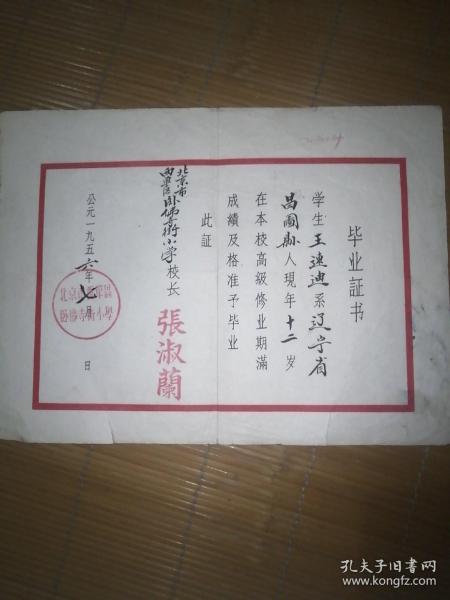 毕业証书
学生王速迪系辽宁省
昌圖縣人現年十二岁
在本校高級修业期滿
成績及格准予毕业
此証
北京市
西單区
卧佛寺街小学校长 張淑蘭
公元一九五六年七月 日
孔夫子旧书网
www.kongfz.com